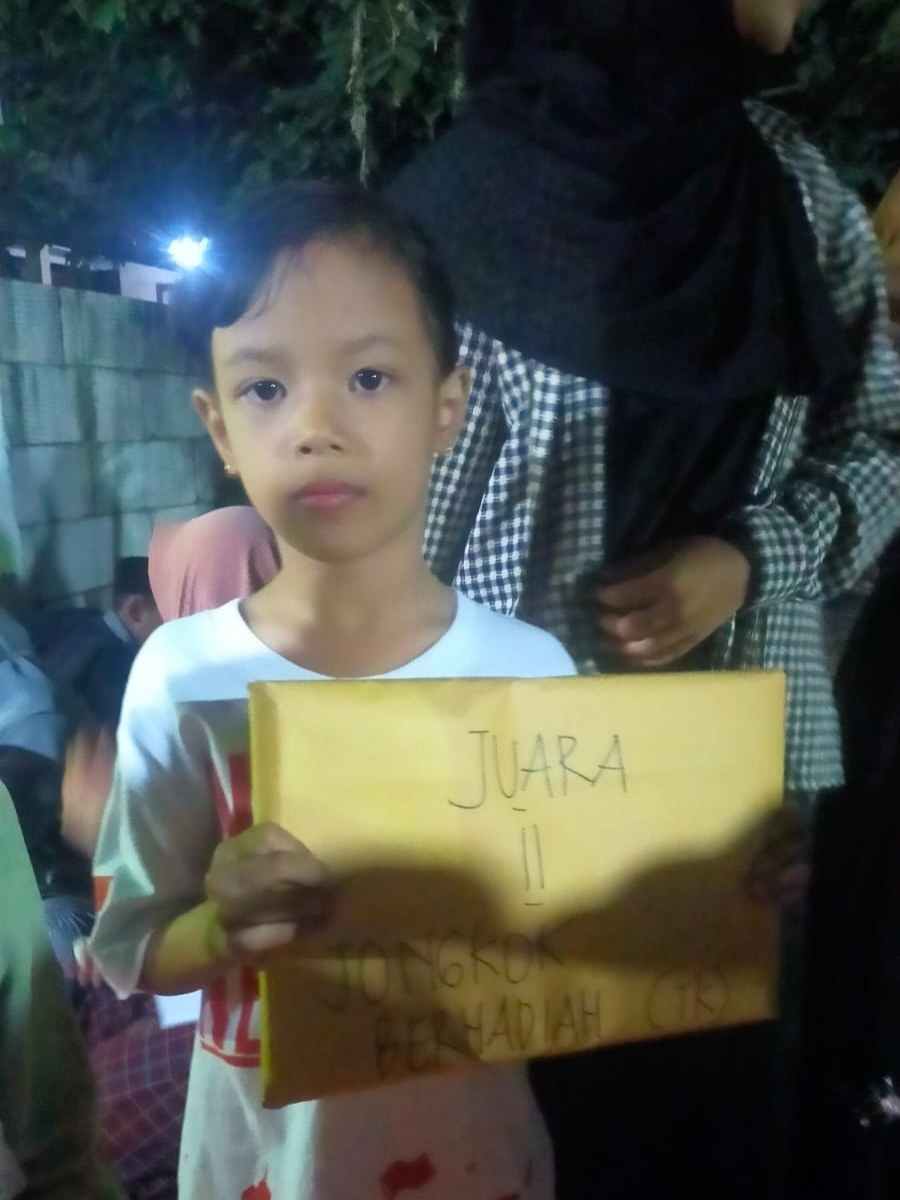 JUARA
II
JONGKOK
BERHADIAH (TK)